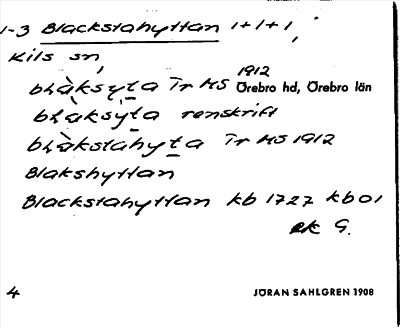 1-3 Blackstahyttan 1+1+1,
Kils sn,
blàksy̱ta Tr MS 1912 Örebro hd, Örebro län
blàksýta renskrift
blàkstahyṯa Tr MS 1912
Blakshyttan
Blackstahyttan kb 1727 kb01
ek G.
4 JÖRAN SAHLGREN 1908